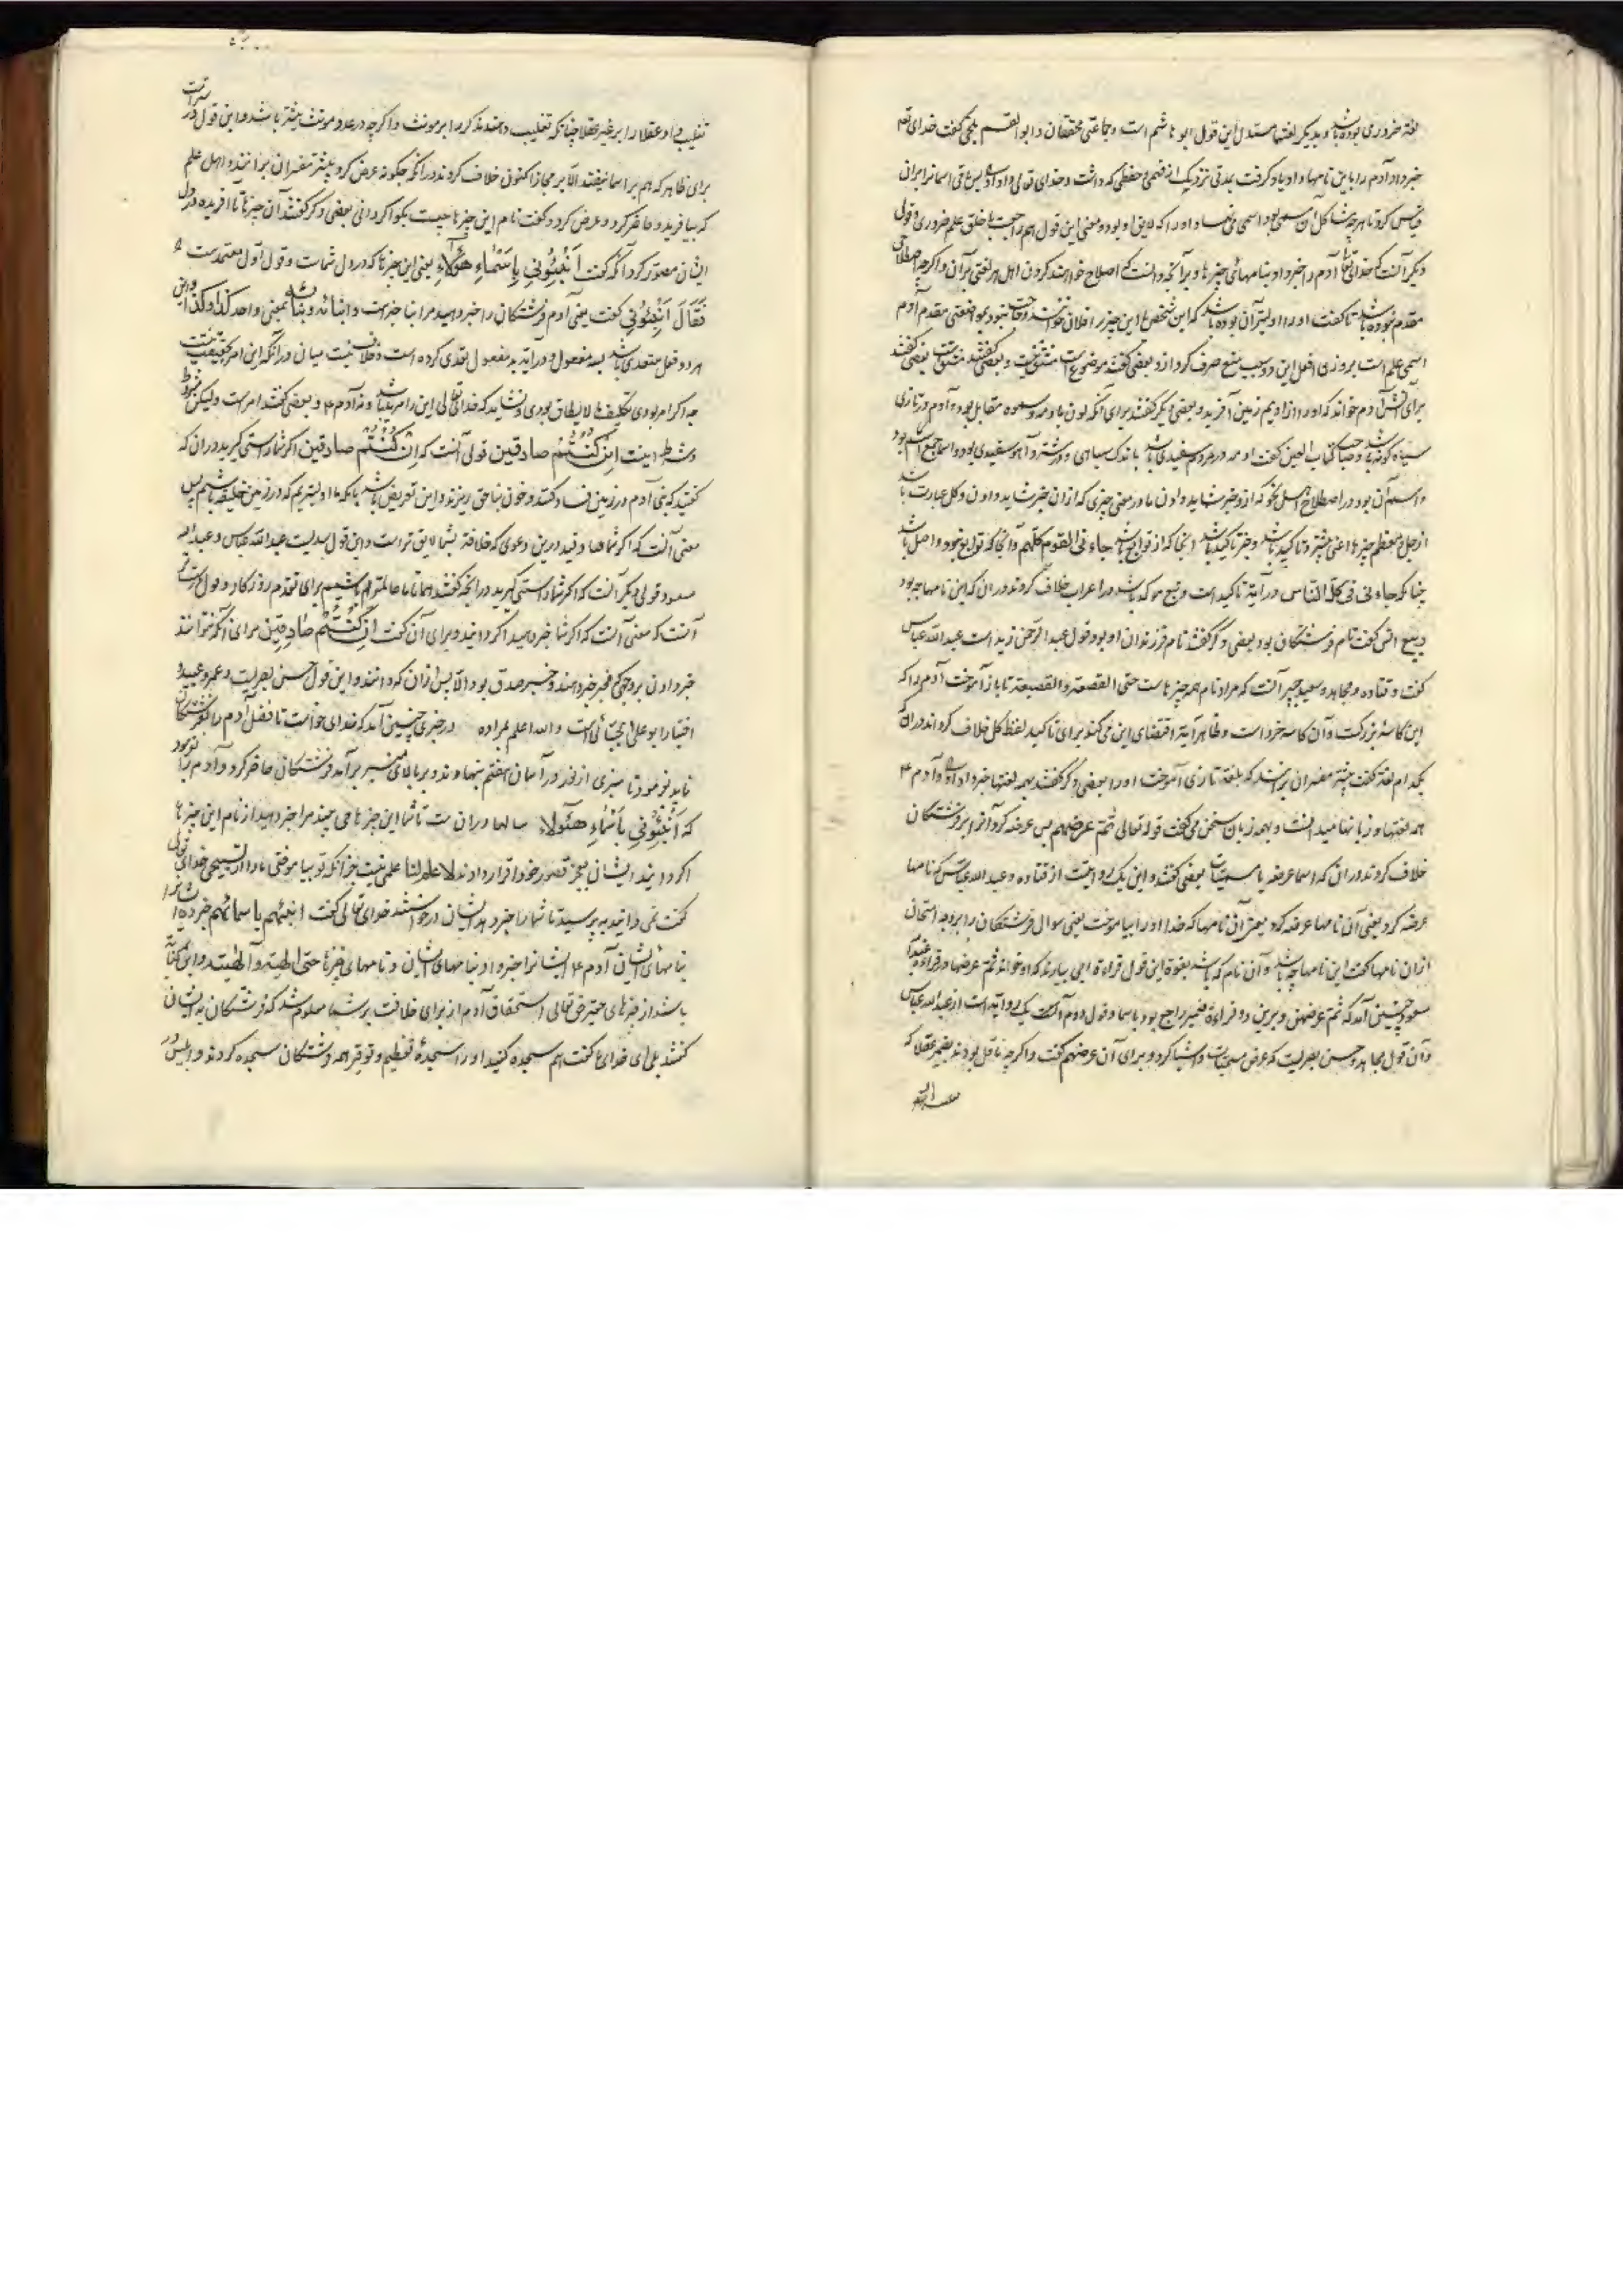 لغة ضروری بوده باشد و بدیگر لغتها مستدل این قول ابو هاشم است و جماعتی محققان و ابوالقسم بلخی گفت خدای تعالی
خبر داد آدم را باین نامها و او یاد گرفت بمدتی نزدیک از فهمی و حفظی که داشت و خدای تعالی او را داد پس باقی اسما برین
قیاس کرد تا هر چه مشاکل آن مسمی بود اسمی می نهاد او را که لایق او بود و معنی این قول هم راجعست با خلق علم ضروری و قولی
دیگر آنست که خدای تعالی آدم را خبر داد بنامهای چیزها و برآنچه دانست که اصلاح خواهند کردن اهل هر لغتی بر آن و اگر چه اصطلاحی
مقدم نبوده باشد تا گفت او را اولیتر آن بوده باشد که این شخص یا این چیز را فلان خوانند و حاجت نبود بمواضعتی مقدم و آدم
اسمی علم است بر وزن افعل این دو سبب منع صرف کرد او را و بعضی گفتند موضوع است مشتق نیست و بعضی گفتند مشتق است بعضی گفتند
برای آتش آدم خواند که او را از ادیم زمین آفرید و بعضی دیگر گفتند برای آنکه لون با ادمه و سمره مقابل بود و آدم در تازی
سیاه گونه باشد و صاحب کتاب العین گفت ادمه در مردم سفیدی باشد باندک سیاهی و در شتر و آهو سفیدی بود و اسما جمع اسم بود
و اسم آن بود در اصطلاح اهل نحو که ازو خبر شاید دادن یا در معنی چیزی که ازان خبر شاید دادن و کل عبارت باشد
از جمل معظم چیزها اعنی بیشتر و تاکید باشد و جز تاکید باشد اینجا که از توابع باشد جاءنی القوم کلهم و آنجا که توابع نبود و اصل باشد
چنانکه جاءنی کل الناس در آیت تاکید است و تبع مؤکد باشد در اعراب خلاف کردند در آن که این نامها چه بود
ربیع انس گفت نام فرشتگان بود بعضی دگر گفتند نام فرزندان او بود و قول عبدالرحمن زید است عبدالله عباس
گفت و قتاده و مجاهد و سعید جبیر آنست که مراد نام همه چیزهاست حتی القصعة و القصیعة تا باز آموخت آدم را که
این کاسه بزرگست و آن کاسه خرد است و ظاهر آیة اقتضای این می کند برای تاکید لفظ کل خلاف کرده اند در آن که
بکدام لغة گفت بیشتر مفسران برانند که بلغة تازی آموخت او را بعضی دگر گفتند بهمه لغتها خبر داد او را و آدم ع
همه لغتها و زبانها میدانست و بهمه زبان سخن می گفت قوله تعالی ثم عرضهم پس عرضه کرد آنرا بر فرشتگان
خلاف کردند در آن که اسما عرضه یا مسمیات بعضی گفتند و این یک روایتست از قتاده و عبدالله عباس که نامها
عرضه کرد یعنی آن نامها عرضه کرد یعنی آن نامها که خدا او را بیاموخت یعنی سوال فرشتگان را بر وجه امتحان
ازان نامها گفت این نامها چه باشد و آن نام که باشد بقوة این قول قراءة ابی بیارند که او خواند ثم عرضها و قراءة عبدالله
مسعود چنین آمد که ثم عرضهن و برین دو قراءة ضمیر راجع بود با اسما و قول دوم آنست که روایت است از عبدالله عباس
و آن قول مجاهد و حسن بصریست که عرض مسمیات و اشیا کرد و برای آن عرضهم گفت و اگر چه ناقل بودند بغیر عقلا که
تغلیب داد عقلا را بر غیر عقلا چنانکه تغلیب دهند مذکر را بر مونث و اگر چه در عدد مونث بیشتر باشد و این قول درست تر است
برای ظاهر که هم بر اسما نیفتد الا بر مجاز اکنون خلاف کردند در آنکه چگونه عرض کرد بیشتر مفسران برانند و اهل علم
که بیافرید و حاضر کرد و عرض کرد و گفت نام این چیزها چیست بگو اگر دانی بعضی دگر گفتند آن چیزها نا آفریده در دل
ایشان مصور کرد آنگه گفت اَنْبِئُونِی بِاَسْمَاءِ هٰؤُلَاءِ یعنی این چیزها که در دل شماست و قول اول معتمدست
فَقَالَ اَنْبِئُونِی گفت یعنی آدم فرشتگان را خبر دهید مرا نبا خبر است و انبائه و نبائه بمعنی واحد کذا و کذا و این
هر دو فعل متعدی باشد بسه مفعول و در آیه بدو مفعول تعدی کرده است و خلاف نیست میان در آنکه این امر بحقیقت نیست
چه اگر امر بودی تکلیف ما لایطاق بودی و نشاید که خدای تعالی این را مرید باشد و نه آدم ع و بعضی گفتند امر است ولیکن مشروط
و شرط اینست اِنْ کُنْتُم صادقین قولی آنست که اِنْ کُنْتُم صادقین اگر شما راستی گیرید در آن که
گفتید که بنی آدم در زمین فساد کنند و خون بناحق ریزند و این تعریض باشد بآنکه ما اولیتریم که در زمین خلیفه باشیم پس
معنی آنست که اگر شما صادقید درین دعوی که خلافة بشما لایق تر است و این قول بدلیست عبدالله عباس و عبدالله
مسعود قولی دیگر آنست که اگر شما راستی گیرید در آنچه گفتید همانا ما عالمتر باشیم برای تقدم روزگار و قول درست تر
آنست که معنی آنست که اگر شما خبر دهید اگر دانید و برای آن گفت اِنْ کُنْتُمْ صَادِقِینَ برای آنکه نتوانند
خبر دادن بر وجهی که مخبر خبر دهند و خبر صدق بود الا پس ازان که دانند و این قول حسن بصریست و عمرو عبید و
اختیار ابو علی جبائی است و الله اعلم بمراده در خبری چنین آمد که خدای خواست تا فضل آدم را بفرشتگان
نماید بفرمود تا منبری از نور در آسان هفتم بنهادند و بر بالای منبر برآمد فرشتگان حاضر کرد و آدم را بفرمود
که اَنْبِئُونِی بِاَسْمَاءِ هٰؤُلَاءِ سالها و ران ست تا شما این چیزها می بینید مرا خبر دهید از نام این چیزها
اگر دانید ایشان بعجز و قصور خود اقرار دادند لا علم لنا علمی نیست جز آنکه تو بیاموختی ما را از تسبیحی خدای تعالی
گفت نمی دانید بپرسید تا شما را خبر دهد ایشان درخواستند خدای تعالی گفت انبئهم باسمائهم خبر ده ایشانرا
بنامهای ایشان آدم ع ایشانرا خبر داد بنامهای ایشان و نامهای چیزها حتی
باشد از چیزهای حقیر حق تعالی استحقاق آدم از برای خلافت بر شما معلوم شد که فرشتگان به ایشان
گفتند بلی ای خدای گفت هم سجده کنید او را سجدهٔ تعظیم و توقیر همه فرشتگان سجده کردند و ابلیس در